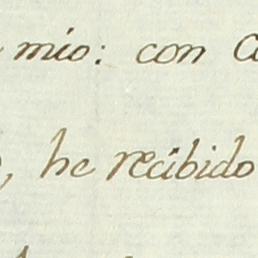 mio: con
, he recibido